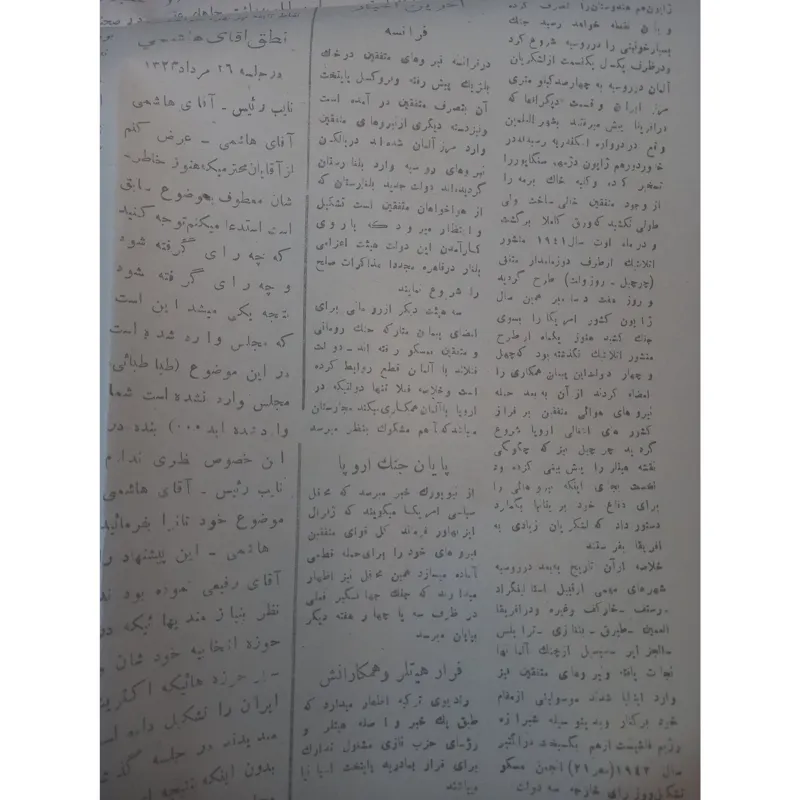 ژاپون هم هندوستان را تصرف کرده
و باین نقشه خواهد رسید جنگ
بسیار خونینی را در روسیه شروع کرد
و در ظرف یکسال یکقسمت از لشکریان
آلمان در روسیه به چهارصد کیلو متری
ایران و قسمت دیگر آنها که
در افریقا پیش میرفتند بشهر العلمین
واقع در دروازه اسکندریه رسیدند در
خاور دور هم ژاپون سنگاپور را
تسخیر کرده و کلیه خاك برمه را
از وجود متفقین خالی ساخت ولی
طولی نکشید که ورق کاملا برگشت
و در ماه اوت سال ۱۹۴۱ منشور
اتلانتیك از طرف دو زمامدار متفق
(چرچیل - روزولت) طرح گردید
و روز هفت دسامبر همین سال
ژاپون کشور امریکا را بسوی
جنگ کشید هنوز یکماه از طرح
منشور اتلانتیك نگذشته بود که چهل
و چهار دولت این پیمان همکاری را
امضاء کردند از آن به بعد حمله
نیروهای هوائی متفقین بر فراز
کشور های اشغالی اروپا شروع
گردید چرچیل نیز که چگونگی
نقشه هیتلر را پیش بینی کرده بود
نخست بجای اینکه نیروهائی را
برای دفاع خود بریتانیا بگمارد
دستور داد که لشکریان زیادی به
افریقا بفرستند
خلاصه از آن تاریخ ببعد در روسیه
شهرهای مهمی از قبیل استالینگراد
- رستف - خارکف وغیره و در افریقا
العلمین - طبرق - بنغازی - ترابلس
- الجزایر از چنگ آلمانها
نجات یافته و نیروهای متفقین نیز
وارد ایتالیا شدند موسولینی از مقام
خود برکنار و بدینوسیله شیرازه
رژیم فاشیست از هم گسیخت در اکتبر
سال ۱۹۴۳ (مهر ۲۱) انجمن مسکو
تشکیل و وزرای خارجه سه دولت
فرانسه
در فرانسه نیروهای متفقین در خاك
بلژیك پیش رفته و بروکسل پایتخت
آن بتصرف متفقین در آمده است
و نیز دسته دیگری از نیروهای متفقین
وارد آلمان شده اند در بالکان
نیروهای روسیه وارد بلغارستان
گردیده‌اند دولت جدید بلغارستان که
از هواخواهان متفقین است تشکیل
و انتظار میرود که با روی
کار آمدن این دولت هیئت اعزامی
بلغار در قاهره مجددا مذاکرات صلح
را شروع نمایند
سه هیئت دیگر از رومانی برای
امضای پیمان متارکه جنگ رومانی
و متفقین بمسکو رفته اند - دولت
فنلاند با آلمان قطع روابط کرده
است و خلاصه فعلا تنها دولتیکه در
اروپا با آلمان همکاری میکند مجارستان
میباشد که آنهم مشکوك بنظر میرسد
پایان جنك اروپا
از نیویورك خبر میرسد که محافل
سیاسی امریکا میگویند که ژنرال
ایزنهاور فرمانده کل قوای متفقین
نیروهای خود را برای حمله قطعی
آماده میسازد همین محافل نیز اظهار
میدارند که جنك جهانگیر فعلی
در ظرف سه یا چهار هفته دیگر
بپایان میرسد
فرار هیتلر و همکارانش
رادیوی ترکیه اظهار میدارد که
طبق یك خبر واصله هیتلر و
رؤسای حزب نازی مشغول تدارك
برای فرار پایتخت اسپانیا
میباشند
نطق آقای هاشمی
در جلسه ۲۶ مرداد ۱۳۲۳
نایب رئیس - آقای هاشمی
آقای هاشمی - عرض کنم
از آقایان محترمیکه هنوز خاطر-
شان معطوف بموضوع سابق
است استدعا میکنم توجه کنید
که چه رای گرفته شود
و چه رای گرفته شود
نتیجه یکی میشد این است
که مجلس وارد شده است
در این موضوع (طباطبائی-
مجلس وارد نشده است شما
وارد شده اید ۰۰۰) بنده در
این خصوص نظری ندارم
نایب رئیس - آقای هاشمی
موضوع خودتانرا بفرمائید
هاشمی - این پیشنهاد را
آقای رفیعی نموده بودند
نظر بنیازمندیهائیکه در
حوزه انتخابیه خودشان و
سایر حوزه هائیکه اکثریت
ایران را تشکیل داده است
میدیدند در جلسه گذشته
بدون اینکه نتیجه